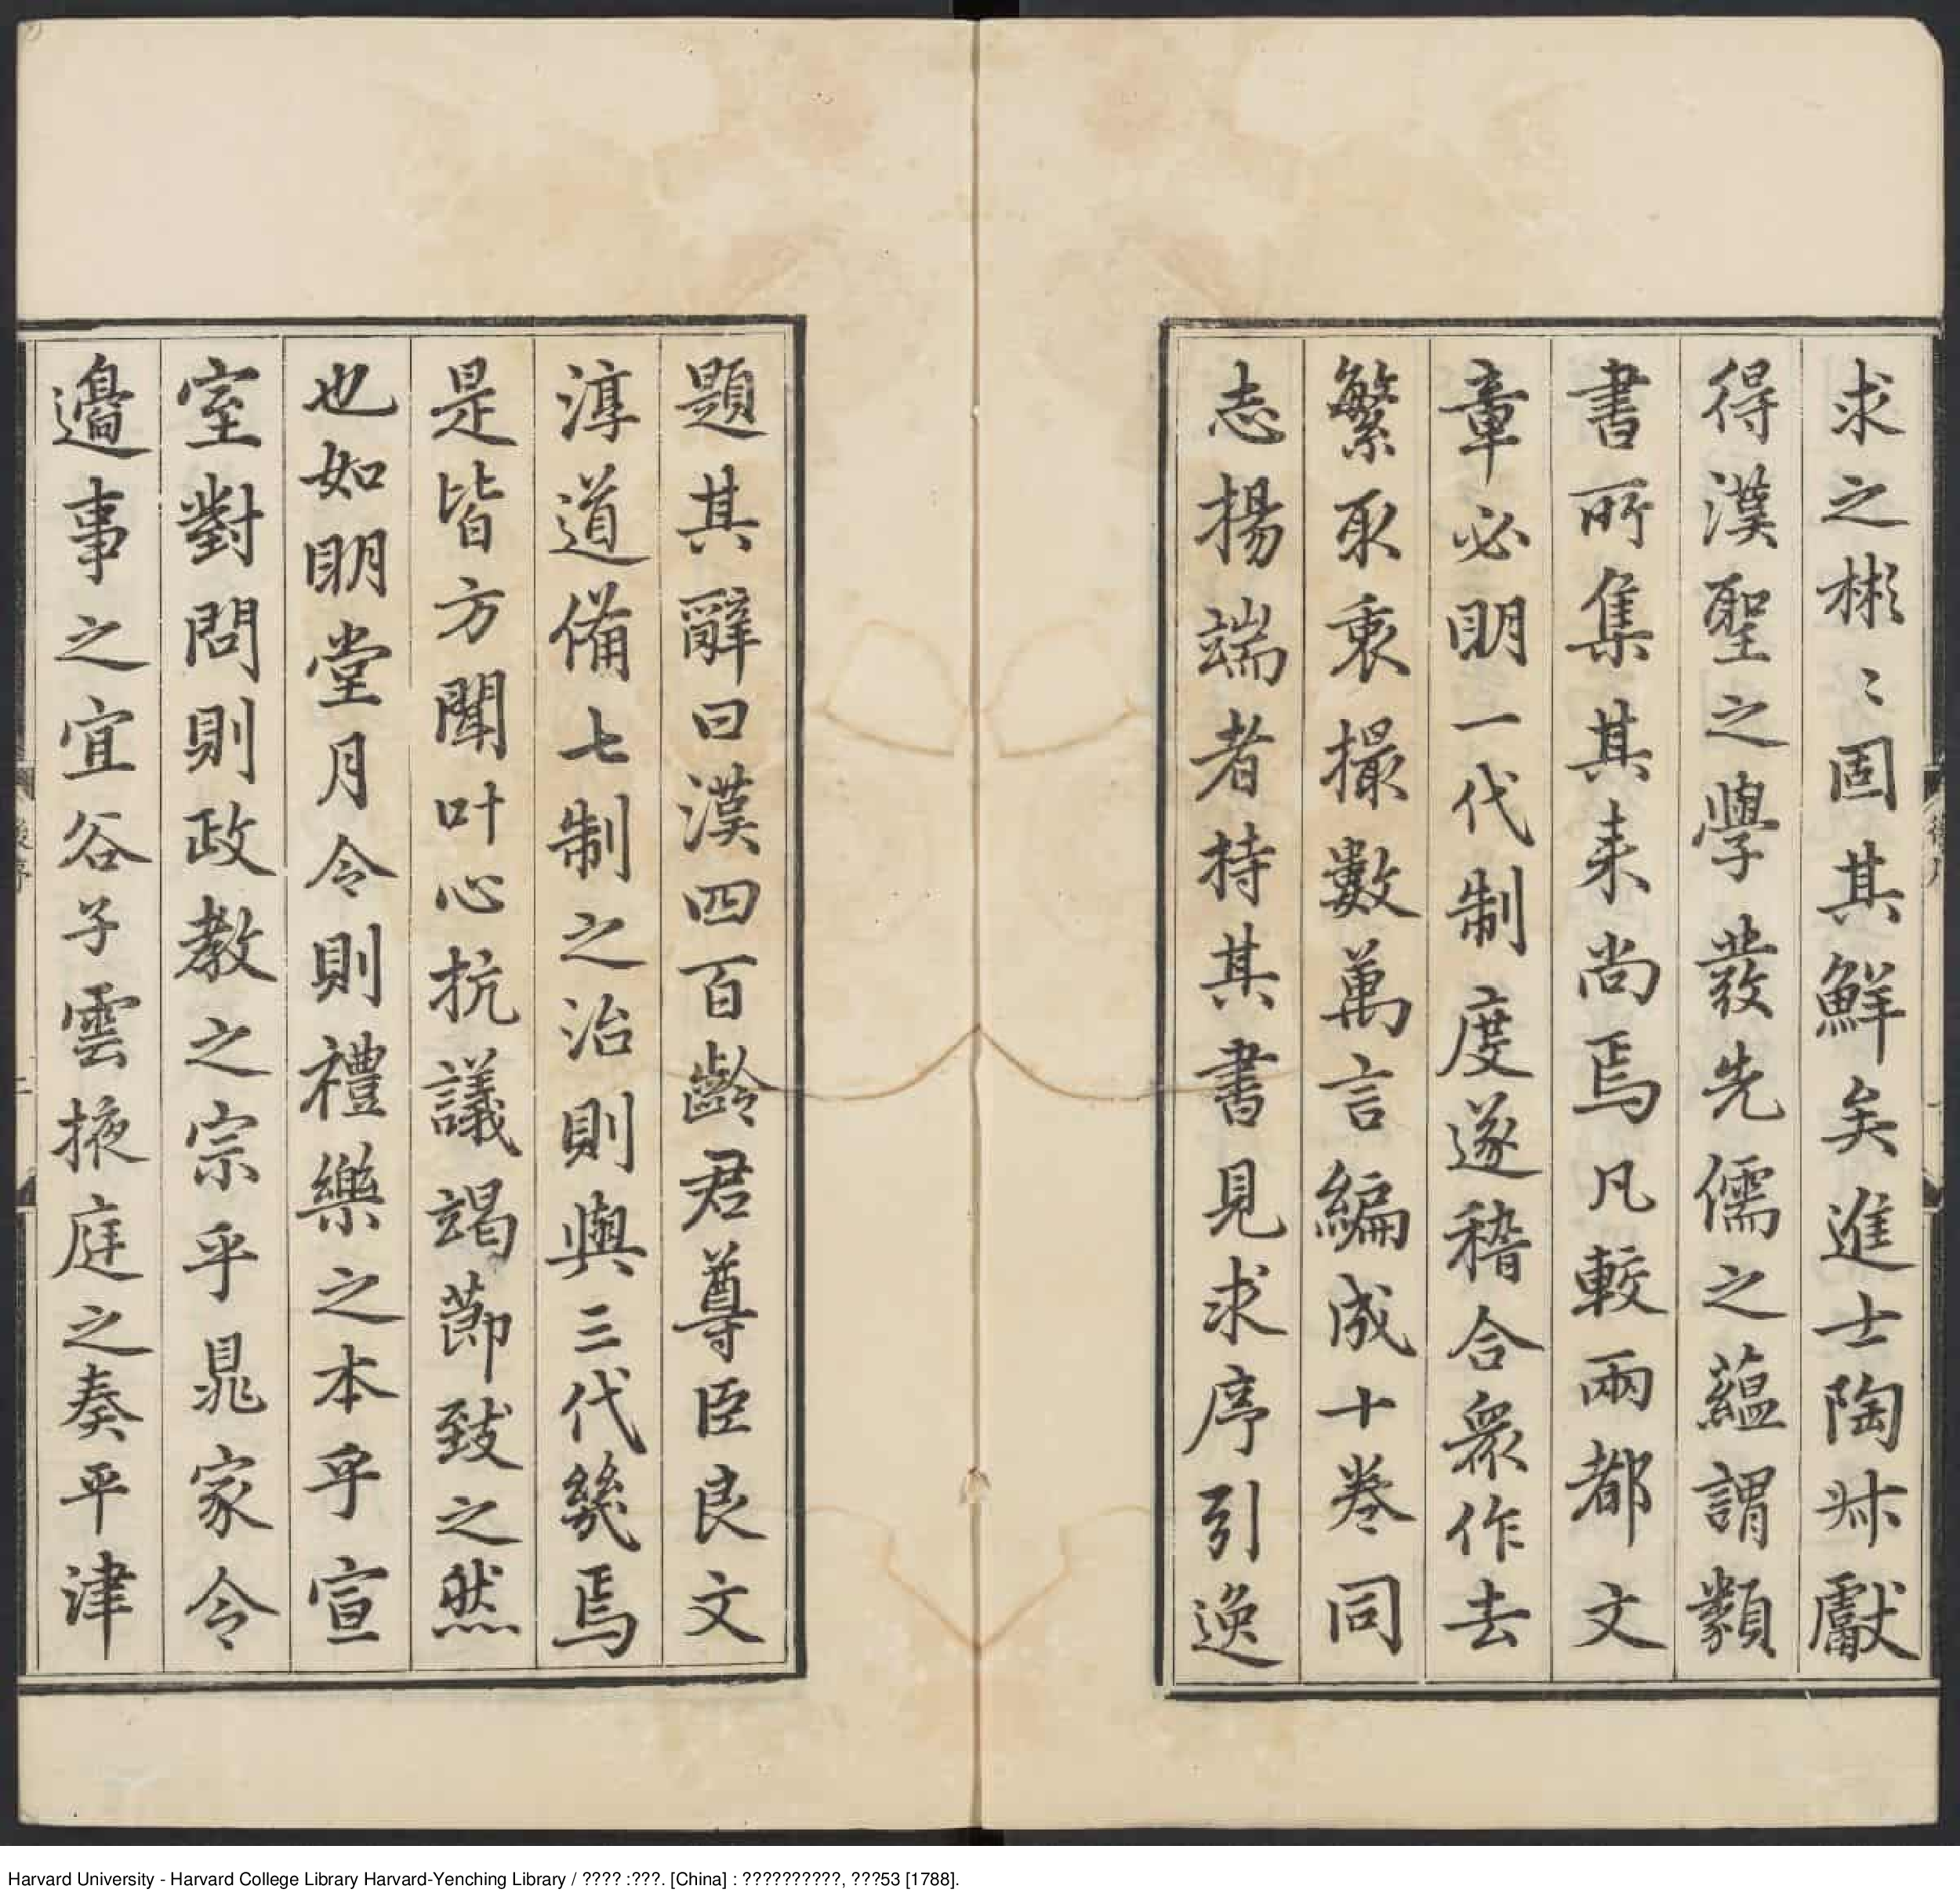 求之彬〻固其鮮矣進士陶叔獻
得漢聖之學發先儒之蘊謂類
書所集其来尚焉凡較兩都文
章必明一代制度遂稽合衆作去
繁取衷撮數萬言編成十卷同
志揚端者持其書見求序引逸
題其辭曰漢四百齡君尊臣良文
淳道備七制之治則與三代幾焉
是皆方聞叶心抗議竭節致之然
也如明堂月令則禮樂之本乎宣
室對問則政教之宗乎晁家令
邊事之宜谷子雲掖庭之奏平津
Harvard University - Harvard College Library Harvard-Yenching Library / ???? :???. [China] : ??????????, ???53 [1788].